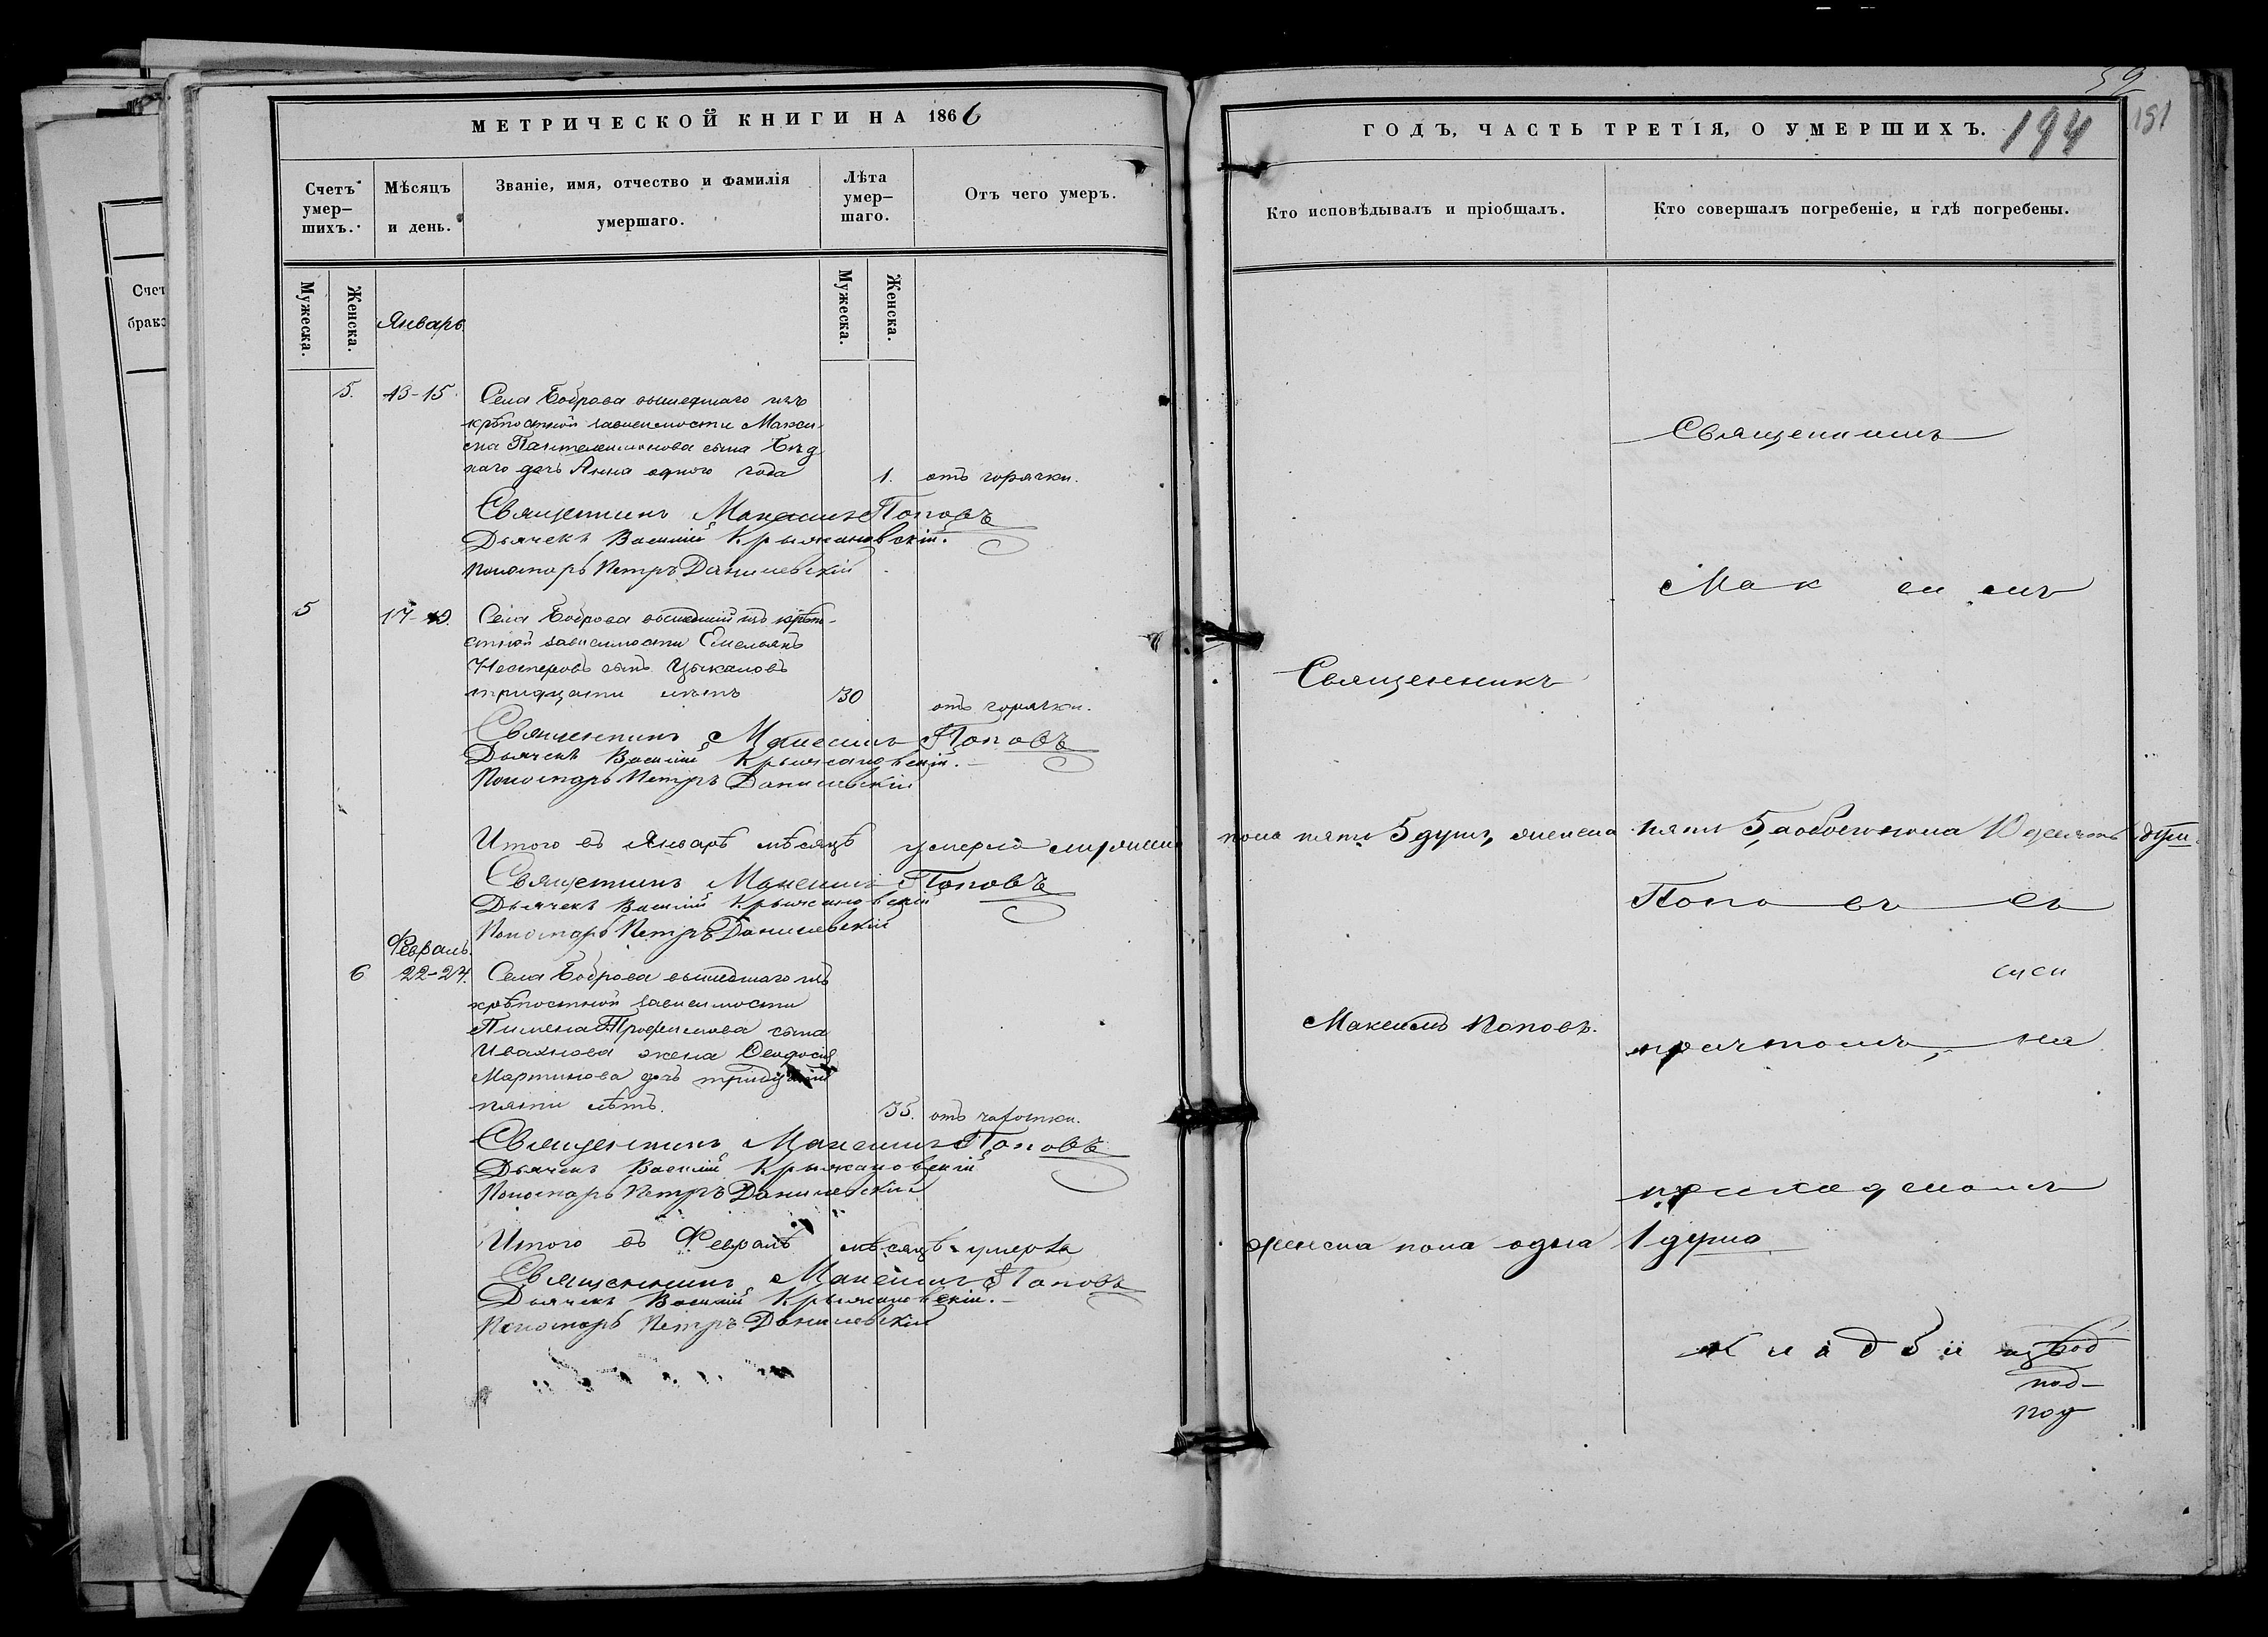 МЕТРИЧЕСКОЙ КНИГИ НА 1866
Счетъ умер-шихъ.
Мѣсяцъ и день.
Званіе, имя, отчество и фамилія умершаго.
Лѣта умер-шаго.
Отъ чего умеръ.
Мужеска.
Женска.
Январь
Мужеска.
Женска.
5. 13-15 Села Боброва вышедшаго изъ
крѣпостной зависимости Макси-
ма Пантелеимонова сына Бѣд
наго дочь Анна одного года 1. отъ горячки.
Священникъ Максимъ Поповъ
Дьячекъ Василій Крыжановскій.
Пономарь Петръ Данилевскій
5 17- Села Боброва вышедшій изъ крѣпо-
стной зависимости Емельянъ
Нестеровъ сынъ Цыкаловъ
тридцати лѣтъ 30 отъ горячки.
Священникъ Максимъ Поповъ
Дьячекъ Василій Крыжановскій.
Пономарь Петръ Данилевскій
Итого въ Январѣ мѣсяцѣ умерло мужеска
Священникъ Максимъ Поповъ
Дьячекъ Василій Крыжановскій
Пономарь Петръ Данилевскій
Февраль.
6 22-24. Села Боброва вышедшаго изъ
крѣпостной зависимости
Пимена Трофимова сына
Ивахнова жена Феодосія
Мартинова дочь тридцати
пяти лѣтъ. 35. отъ чахотки.
Священникъ Максимъ Поповъ
Дьячекъ Василій Крыжановскій
Пономарь Петръ Данилевскій
Итого въ Февралѣ мѣсяцѣ умерла
Священникъ Максимъ Поповъ
Дьячекъ Василій Крыжановскій.
Пономарь Петръ Данилевскій
59
ГОДЪ, ЧАСТЬ ТРЕТІЯ, О УМЕРШИХЪ.
194
191
Кто исповѣдывалъ и пріобщалъ.
Кто совершалъ погребеніе, и гдѣ погребены.
Священникъ
Мак си мъ
Священникъ
пола пять 5 душъ, женска пять 5, а обоего пола 10 десять душ
Попо въ съ
Максимъ Поповъ.
причтомъ, на
приходскомъ
женска пола одна 1 душа
кладби